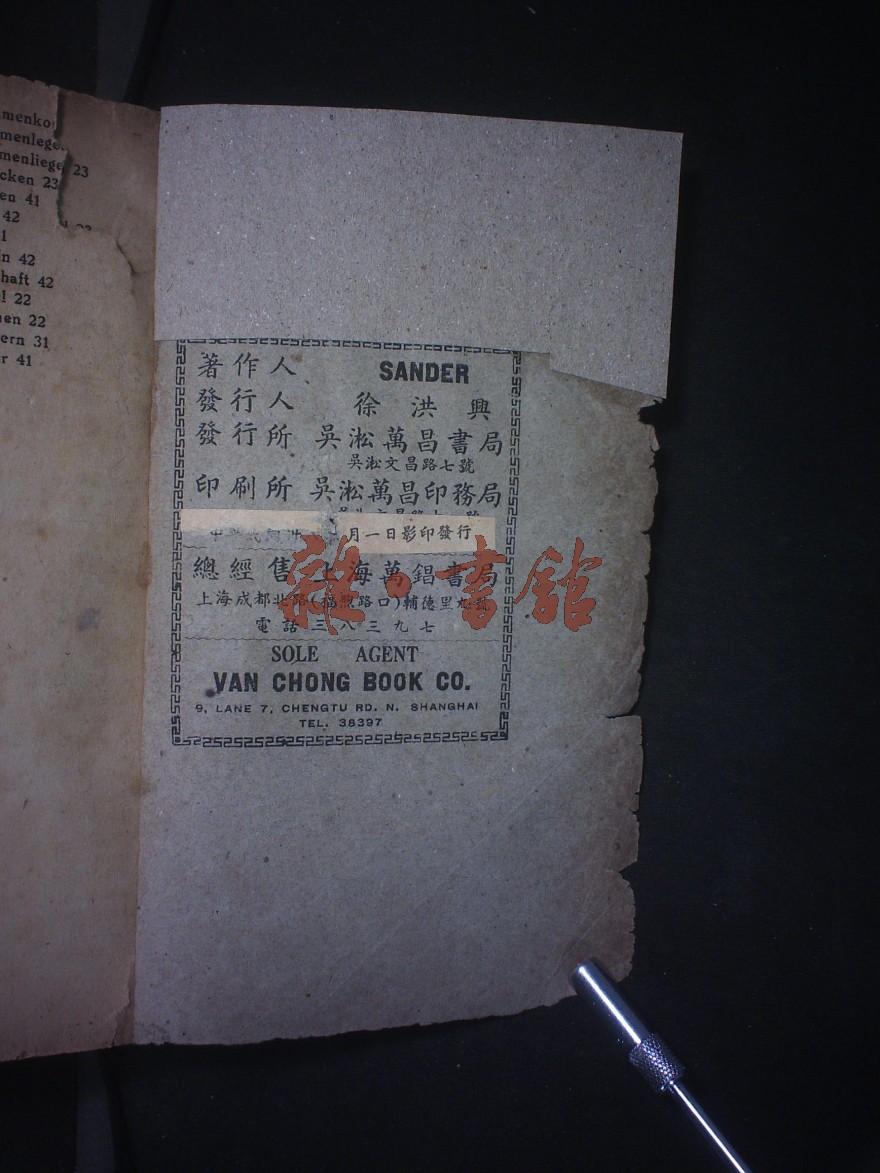 23
cken 23
en 41
42
1
n 42
haft 42
l 22
en 22
ern 31
r 41
著作人 SANDER
發行人 徐洪興
發行所 吳淞萬昌書局
吳淞文昌路七號
印刷所 吳淞萬昌印務局
月一日影印發行
總經售 上海萬錩書局
上海成都北路(福煦路口)輔德里九號
電話三八三九七
SOLE AGENT
VAN CHONG BOOK CO.
9, LANE 7, CHENGTU RD. N. SHANGHAI
TEL. 38397
雜·書館